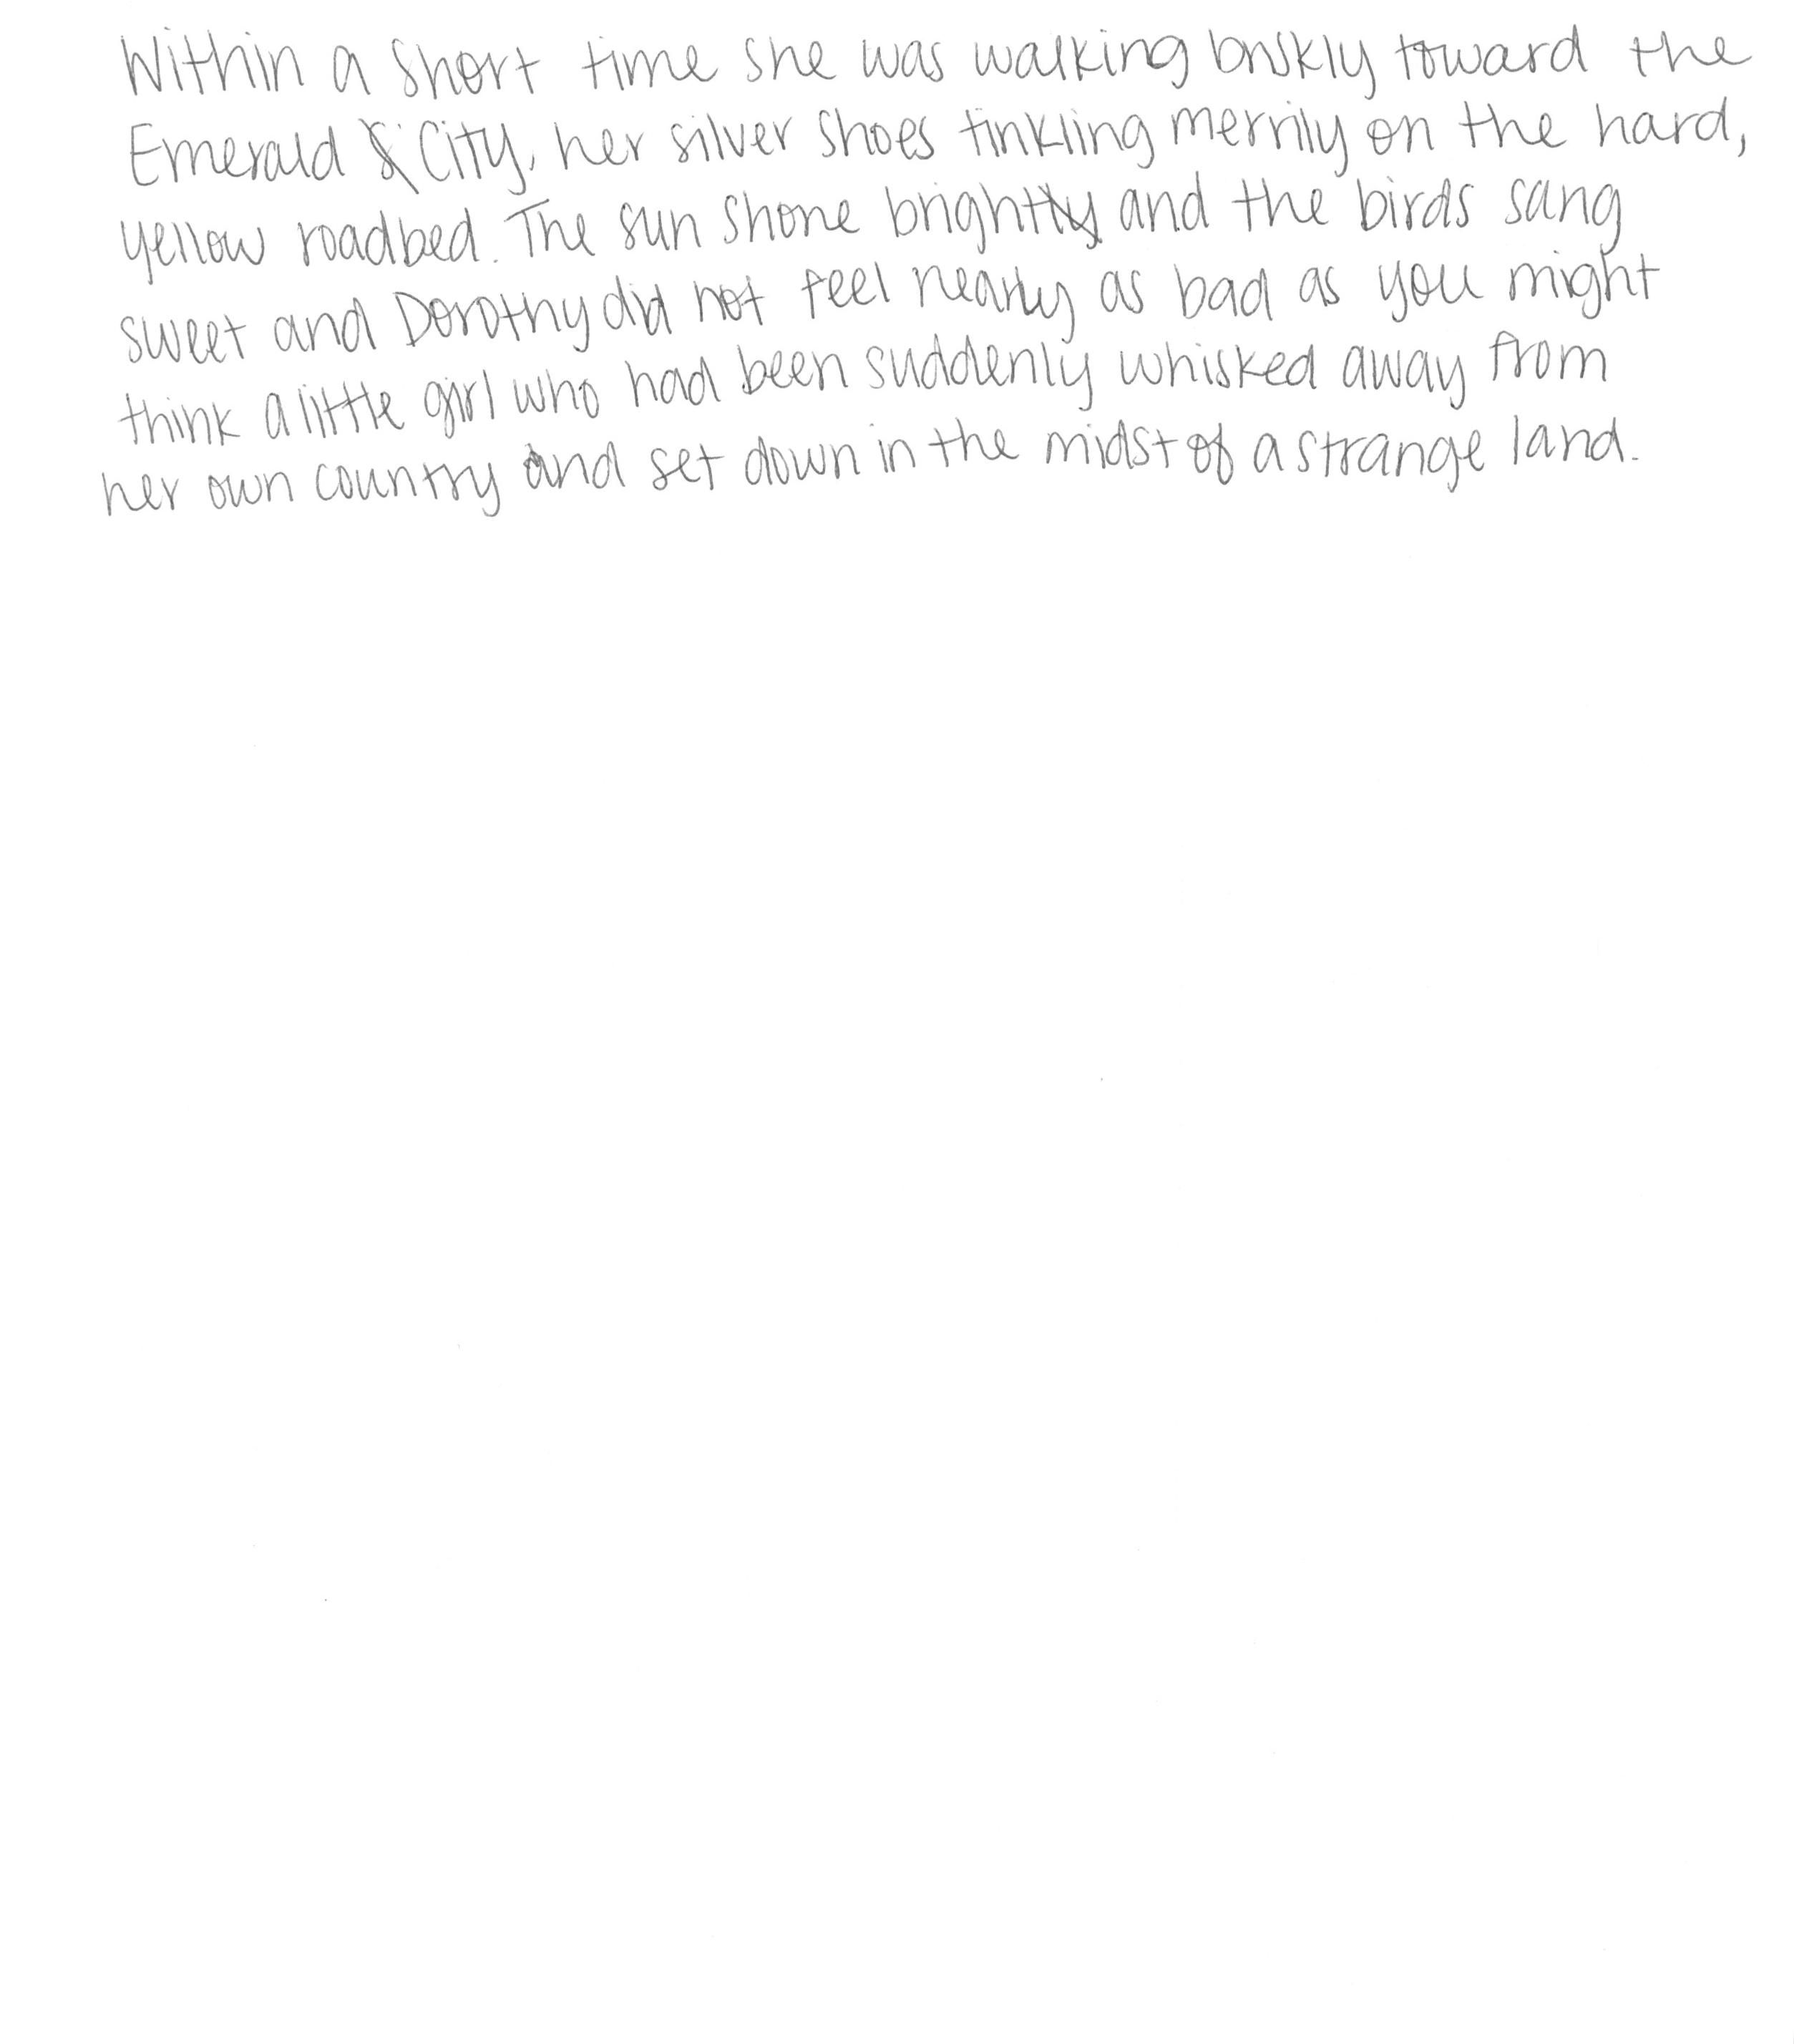 Within a short time she was walking briskly toward the
Emerald City, her silver shoes tinkling merrily on the hard,
yellow roadbed. The sun shone brightly and the birds sang
sweet and Dorothy did not feel nearly as bad as you might
think a little girl who had been suddenly whisked away from
her own country and set down in the midst of a strange land.